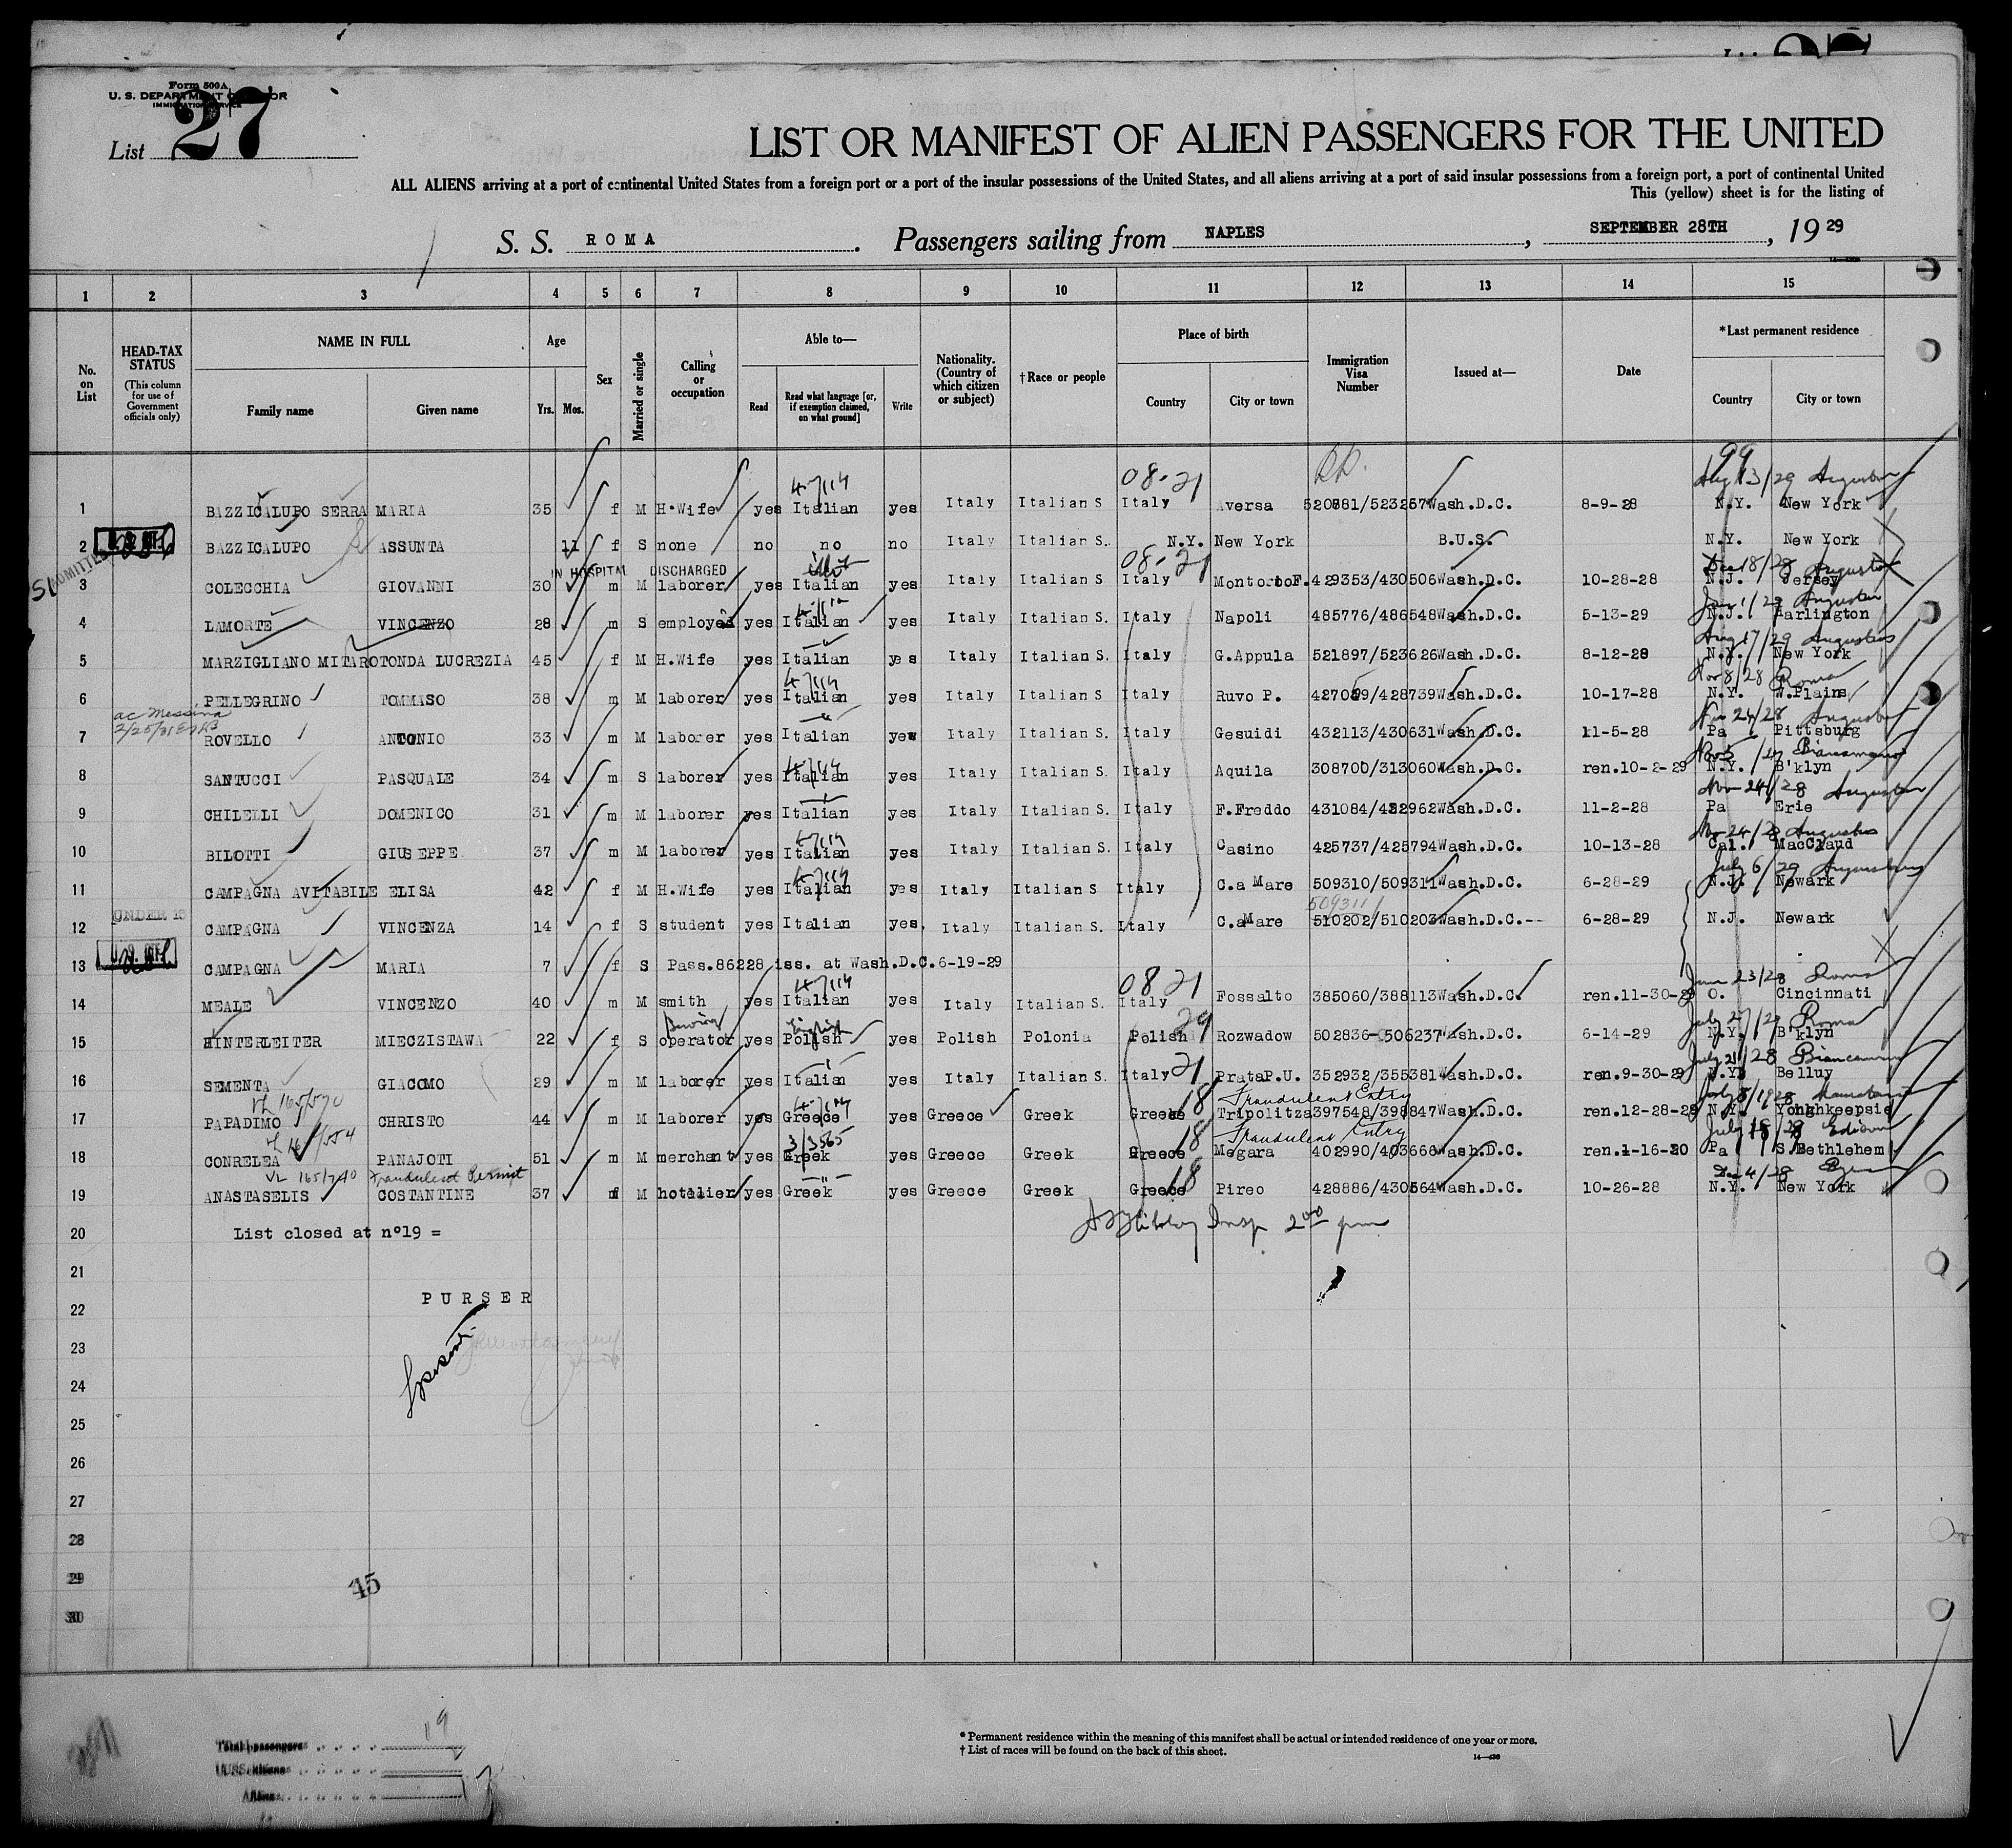 Form 500A
U. S. DEPARTMENT OF LABOR
IMMIGRATION SERVICE
List 27
LIST OR MANIFEST OF ALIEN PASSENGERS FOR THE UNITED
ALL ALIENS arriving at a port of continental United States from a foreign port or a port of the insular possessions of the United States, and all aliens arriving at a port of said insular possessions from a foreign port, a port of continental United
This (yellow) sheet is for the listing of
S. S. ROMA . Passengers sailing from NAPLES , SEPTEMBER 28TH , 19 29
1 2 3 4 5 6 7 8 9 10 11 12 13 14 15
No. on List
HEAD-TAX STATUS
(This column for use of Government officials only)
NAME IN FULL
Family name Given name
Age
Yrs. Mos.
Sex
Married or single
Calling or occupation
Able to—
Read
Read what language [or, if exemption claimed, on what ground]
Write
Nationality. (Country of which citizen or subject)
†Race or people
Place of birth
Country City or town
Immigration Visa Number
Issued at—
Date
*Last permanent residence
Country City or town
08-21
99
1 BAZZICALUPO SERRA MARIA 35 f M H.Wife yes Italian yes Italy Italian S Italy Aversa Wash.D.C. 8-9-28 N.Y. New York
2 BAZZICALUPO ASSUNTA 11 f S none no no no Italy Italian S. N.Y. New York B.U.S. N.Y. New York
ADMITTED IN HOSPITAL DISCHARGED 08-21
3 COLECCHIA GIOVANNI 30 m M laborer yes Italian yes Italy Italian S Italy 429353/430506 Wash.D.C. 10-28-28 N.J. Jersey
4 LAMORTE VINCENZO 28 m S employed yes Italian yes Italy Italian S. Italy Napoli 485776/486548 Wash.D.C. 5-13-29 N.J. Harlington
Aug 17/29 Augustus
5 MARZIGLIANO MITAROTONDA LUCREZIA 45 f M H.Wife yes Italian yes Italy Italian S. Italy G.Appula 521897/523626 Wash.D.C. 8-12-28 N.Y. New York
Nov 8/28 Roma
6 PELLEGRINO TOMMASO 38 m M laborer yes Italian yes Italy Italian S Italy Ruvo P. Wash.D.C. 10-17-28 N.Y. W.Plains
ac Messina
7 ROVELLO ANTONIO 33 m M laborer yes Italian yes Italy Italian S Italy Gesuidi 432113/430631 Wash.D.C. 11-5-28 Pa Pittsburg
8 SANTUCCI PASQUALE 34 m S laborer yes Italian yes Italy Italian S. Italy Aquila 308700/313060 Wash.D.C. ren.10-2-29 N.Y. B'klyn
Nov 24/28 Augustus
9 CHILELLI DOMENICO 31 m M laborer yes Italian yes Italy Italian S. Italy F.Freddo Wash.D.C. 11-2-28 Pa Erie
Augustus
10 BILOTTI GIUSEPPE 37 m M laborer yes Italian yes Italy Italian S. Italy Casino 425737/425794 Wash.D.C. 10-13-28 Cal. MacClaud
July 6/29
11 CAMPAGNA AVITABILE ELISA 42 f M H.Wife yes Italian yes Italy Italian S Italy C.a Mare 509310/509311 Wash.D.C. 6-28-29 N.J. Newark
UNDER 16 509311
12 CAMPAGNA VINCENZA 14 f S student yes Italian yes. Italy Italian S. Italy C.aMare 510202/510203 Wash.D.C.-- 6-28-29 N.J. Newark
13 CAMPAGNA MARIA 7 f S Pass.86228 iss. at Wash.D.C. 6-19-29
08 21 June 23/28 Roma
14 MEALE VINCENZO 40 m M smith yes Italian yes Italy Italian S. Italy Fossalto 385060/388113 Wash.D.C. O. Cincinnati
Sewing English 29 July 27/29 Roma
15 HINTERLEITER MIECZISTAWA 22 f S operator yes Polish yes Polish Polonia Polish Rozwadow Wash.D.C. 6-14-29 N.Y. B'klyn
21
16 SEMENTA GIACOMO 29 m M laborer yes Italian yes Italy Italian S. Italy PrataP.U. 352932/355381 Wash.D.C. ren.9-30-29 N.Y. Belluy
VL 165/570 18 Fraudulent Entry
17 PAPADIMO CHRISTO 44 m M laborer yes Greece yes Greece Greek Greece Tripolitza 397548/398847 Wash.D.C. ren.12-28-29 N.Y.
3/3565 18 Fraudulent Entry Edison
18 CONRELEA PANAJOTI 51 m M merchant yes Greek yes Greece Greek Greece Megara 402990/403666 Wash.D.C. Pa S.Bethlehem
VL 165/740 Fraudulent Permit 18
19 ANASTASELIS COSTANTINE 37 M hotelier yes Greek yes Greece Greek Greece Pireo 428886/430564 Wash.D.C. 10-26-28 N.Y. New York
20 List closed at n°19 =
Insp 2 00 pm
21
22 PURSER
23
24
25
26
27
28
29
30
45
Total passengers 19
U.S. citizens
Aliens
* Permanent residence within the meaning of this manifest shall be actual or intended residence of one year or more.
† List of races will be found on the back of this sheet.
14—436